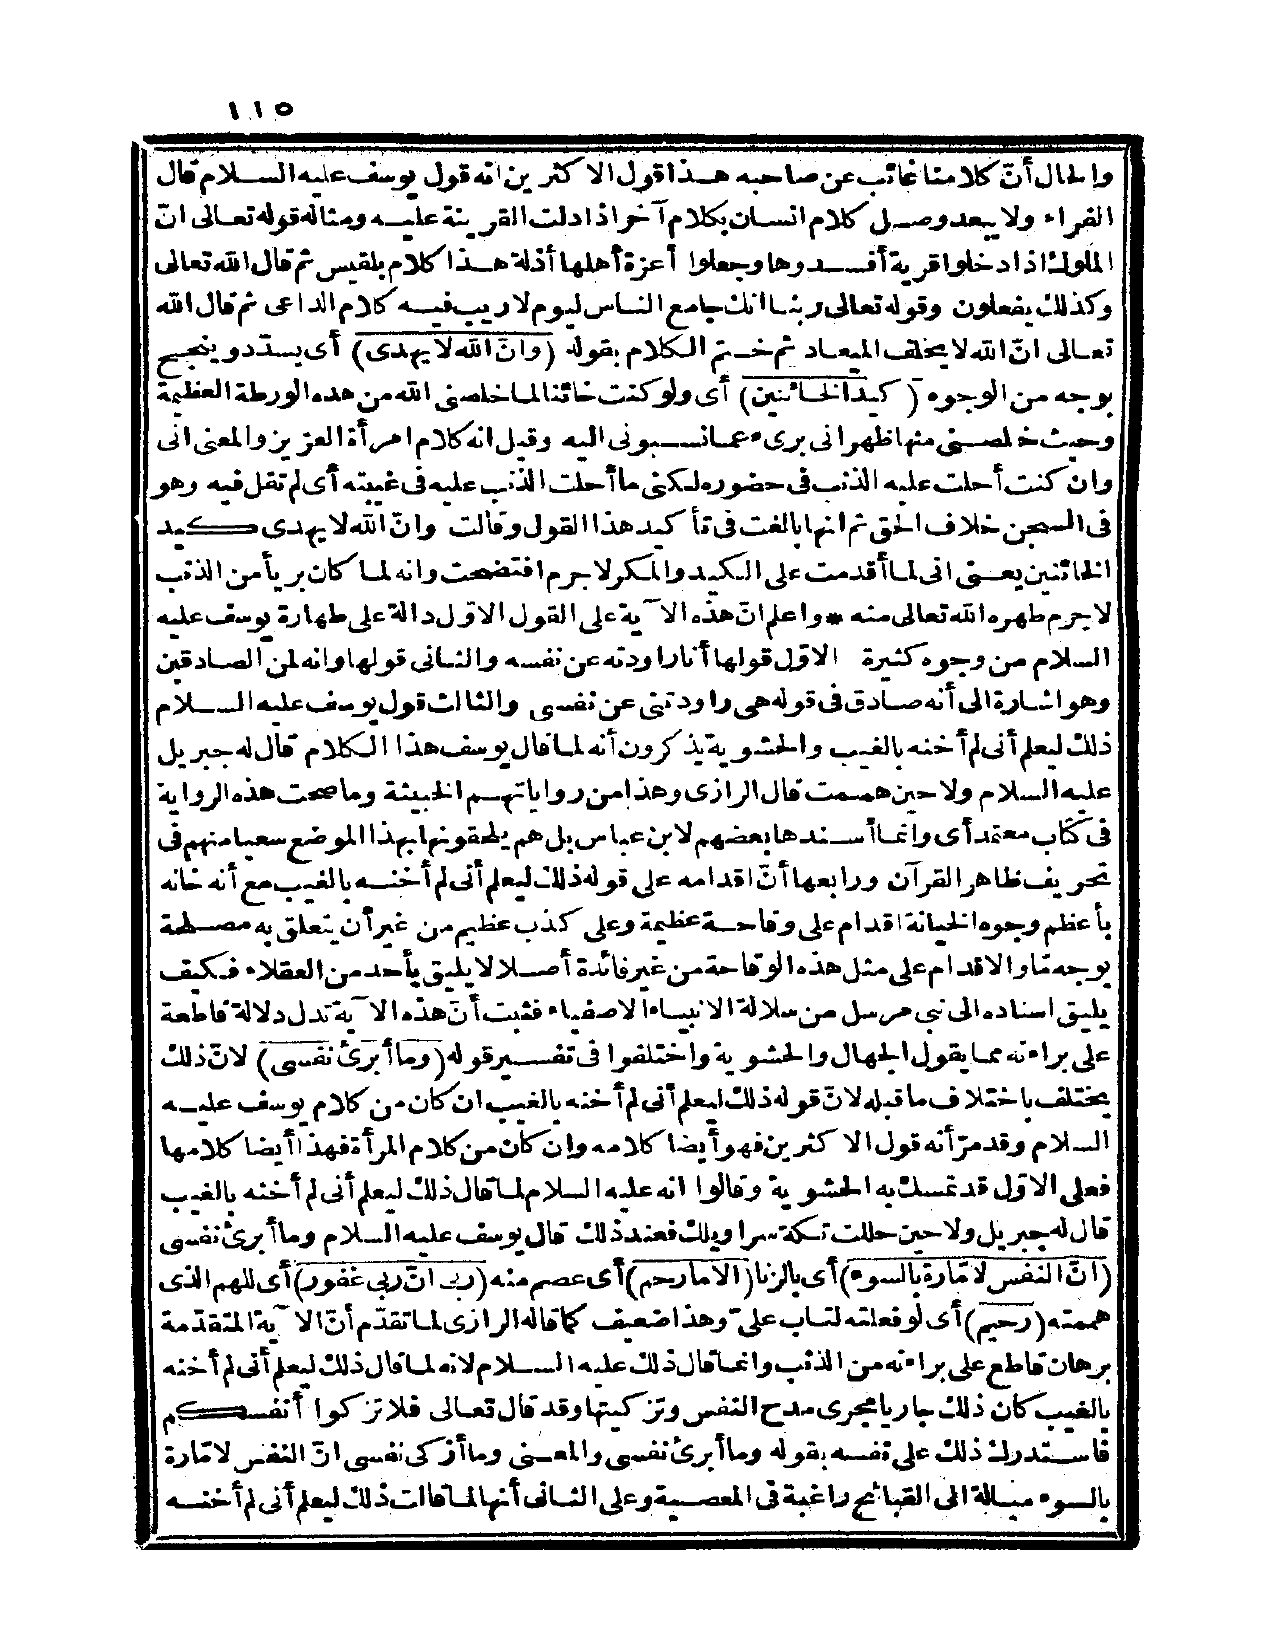 ١١٥
والحال أنّ كلا منا غائب عن صاحبه هـذا قول الاكثرين انه قول يوسف عليه السلام قال
الفراء ولا يبعد وصل كلام انسان بكلام آخر اذا دلت القرينة عليه ومثاله قوله تعالى انّ
الملوك اذا دخلوا قرية أفسدوها وجعلوا أعزة أهلها أذلة هذا كلام بلقيس ثم قال الله تعالى
وكذلك يفعلون وقوله تعالى ربنا انك جامع الناس ليوم لا ريب فيه كلام الداعى ثم قال الله
تعالى انّ الله لا يخلف الميعاد ثم ختم الكلام بقوله (وانّ الله لا يهدى) أى يسدّد وينجح
بوجه من الوجوه (كيد الخائنين) أى ولو كنت خائنا لما خلصنى الله من هذه الورطة العظيمة
وحيث خلصنى منها ظهر انى برىء عما نسبونى اليه وقيل انه كلام امرأة العزيز والمعنى انى
وان كنت أحلت عليه الذنب فى حضوره لكنى ما أحلت الذنب عليه فى غيبته أى لم تقل فيه وهو
فى السجن خلاف الحق ثم انها بالغت فى تأكيد هذا القول وقالت وانّ الله لا يهدى كيد
الخائنين يعنى انى لما أقدمت على الكيد والمكر لا جرم افتضحت وانه لما كان بريأ من الذنب
لا جرم طهره الله تعالى منه * واعلم انّ هذه الآية على القول الاوّل دالة على طهارة يوسف عليه
السلام من وجوه كثيرة الاوّل قولها أنا راودته عن نفسه والثانى قولها وانه لمن الصادقين
وهو اشارة الى أنه صادق فى قوله هى راودتنى عن نفسى والثالث قول يوسف عليه السلام
ذلك ليعلم أنى لم أخنه بالغيب والحشوية يذكرون أنه لما قال يوسف هذا الكلام قال له جبريل
عليه السلام ولا حين هممت قال الرازى وهذا من رواياتهم الخبيثة وما صحت هذه الرواية
فى كتاب معتمد أى وانما أسندها بعضهم لابن عباس بل هم يلحقونها بهذا الموضع سعيا منهم فى
تحريف ظاهر القرآن ورابعها أنّ اقدامه على قوله ذلك ليعلم أنى لم أخنه بالغيب مع أنه خانه
بأعظم وجوه الخيانة اقدام على وقاحة عظيمة وعلى كذب عظيم من غير أن يتعلق به مصلحة
بوجه مّا والاقدام على مثل هذه الوقاحة من غير فائدة أصلا لا يليق بأحد من العقلاء فكيف
يليق اسناده الى نبى مرسل من سلالة الانبياء الاصفياء فثبت أنّ هذه الآية تدل دلالة قاطعة
على براءته مما يقول الجهال والحشوية واختلفوا فى تفسير قوله (وما أبرئ نفسى) لانّ ذلك
يختلف باختلاف ما قبله لانّ قوله ذلك ليعلم أنى لم أخنه بالغيب ان كان من كلام يوسف عليه
السلام وقد مرّ أنه قول الاكثرين فهو أيضا كلامه وان كان من كلام المرأة فهذا أيضا كلامها
فعلى الاوّل قد تمسك به الحشوية وقالوا انه عليه السلام لما قال ذلك ليعلم أنى لم أخنه بالغيب
قال له جبريل ولا حين حللت تكة سراويلك فعند ذلك قال يوسف عليه السلام وما أبرئ نفسى
(انّ النفس لامّارة بالسوء) أى بالزنا (الا ما رحم) أى عصم منه (ربى انّ ربى غفور) أى للهم الذى
هممته (رحيم) أى لو فعلته لتاب علىّ وهذا ضعيف كما قاله الرازى لما تقدّم أنّ الآية المتقدّمة
برهان قاطع على براءته من الذنب وانما قال ذلك عليه السلام لانه لما قال ذلك ليعلم أنى لم أخنه
بالغيب كان ذلك جاريا مجرى مدح النفس وتزكيتها وقد قال تعالى فلا تزكوا أنفسكم
فاستدرك ذلك على نفسه بقوله وما أبرئ نفسى والمعنى وما أزكى نفسى انّ النفس لامّارة
بالسوء ميالة الى القبائح راغبة فى المعصية وعلى الثانى أنها لما قالت ذلك ليعلم أنى لم أخنه